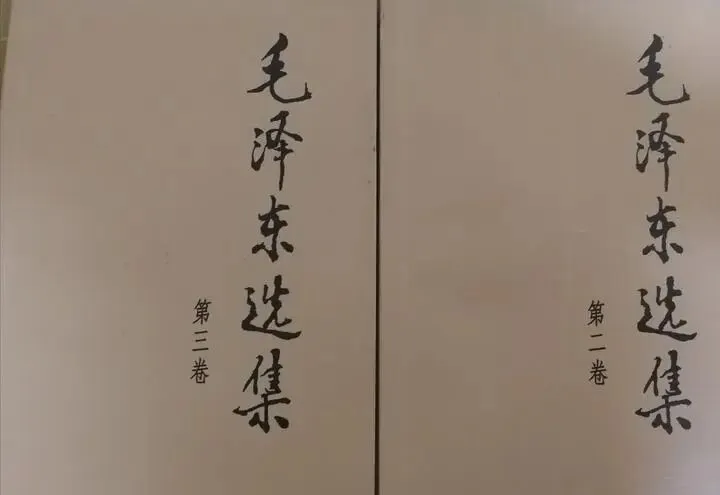 毛泽东选集
第三卷
毛泽东选集
第二卷